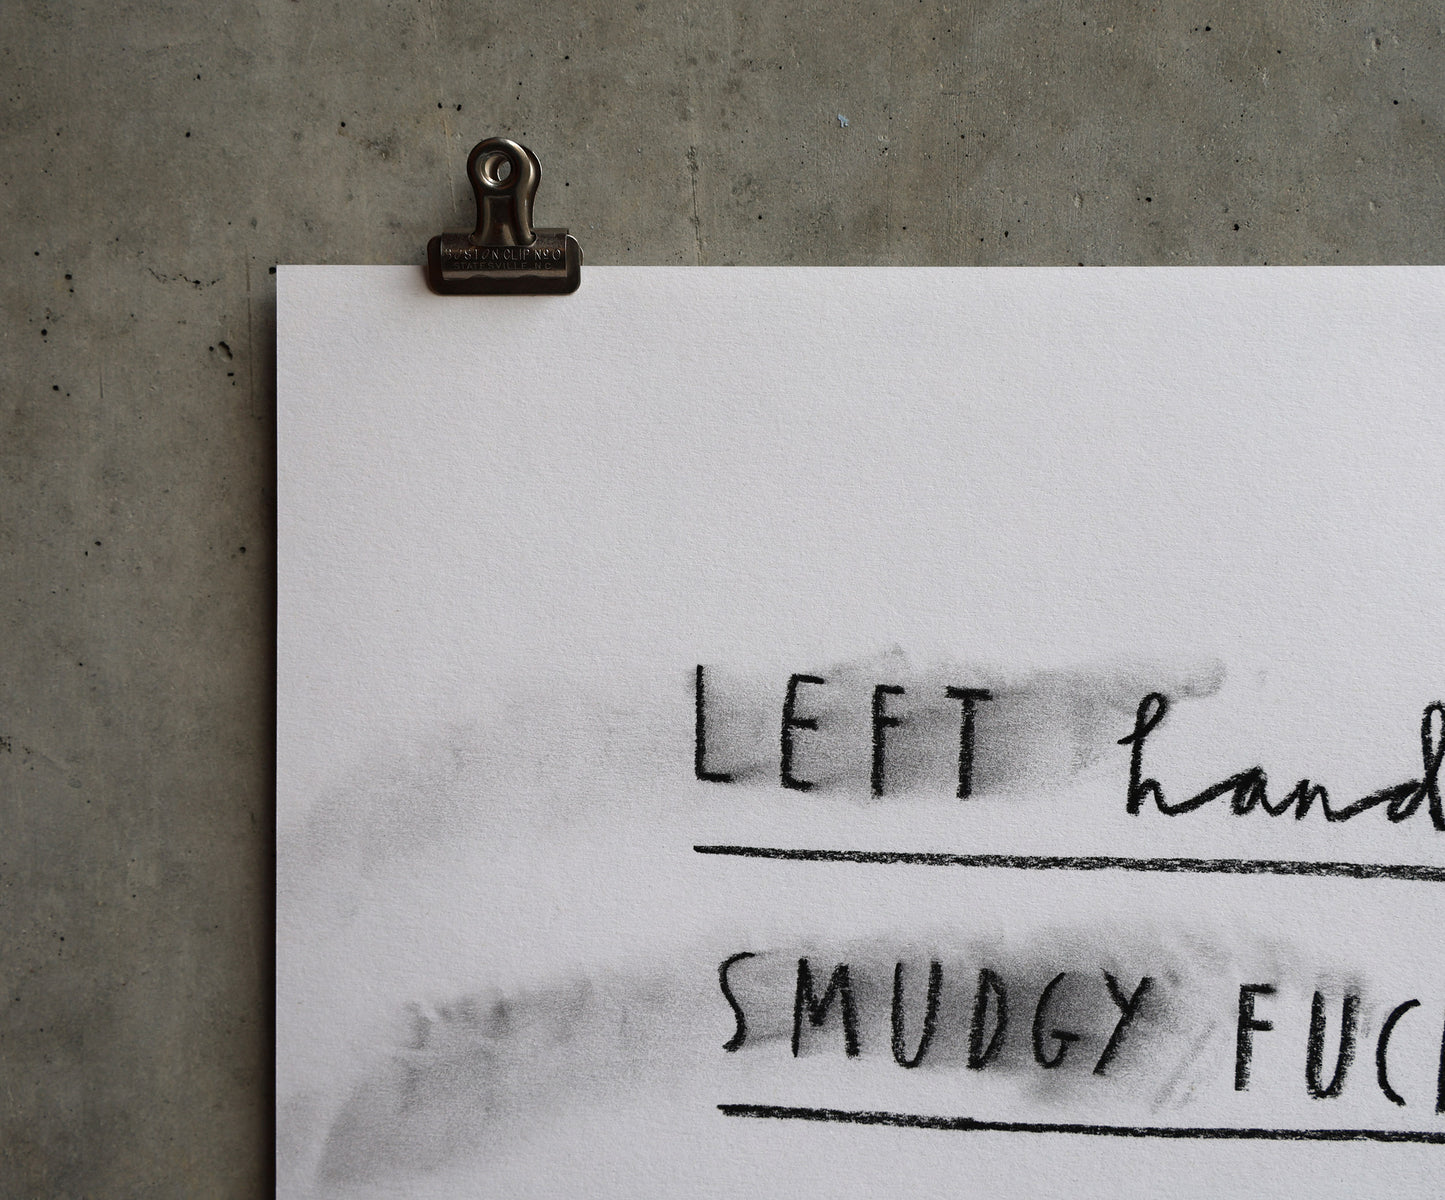 BOSTON CLIP Nº 0
STATESVILLE N.C.
LEFT hand
SMUDGY FUC